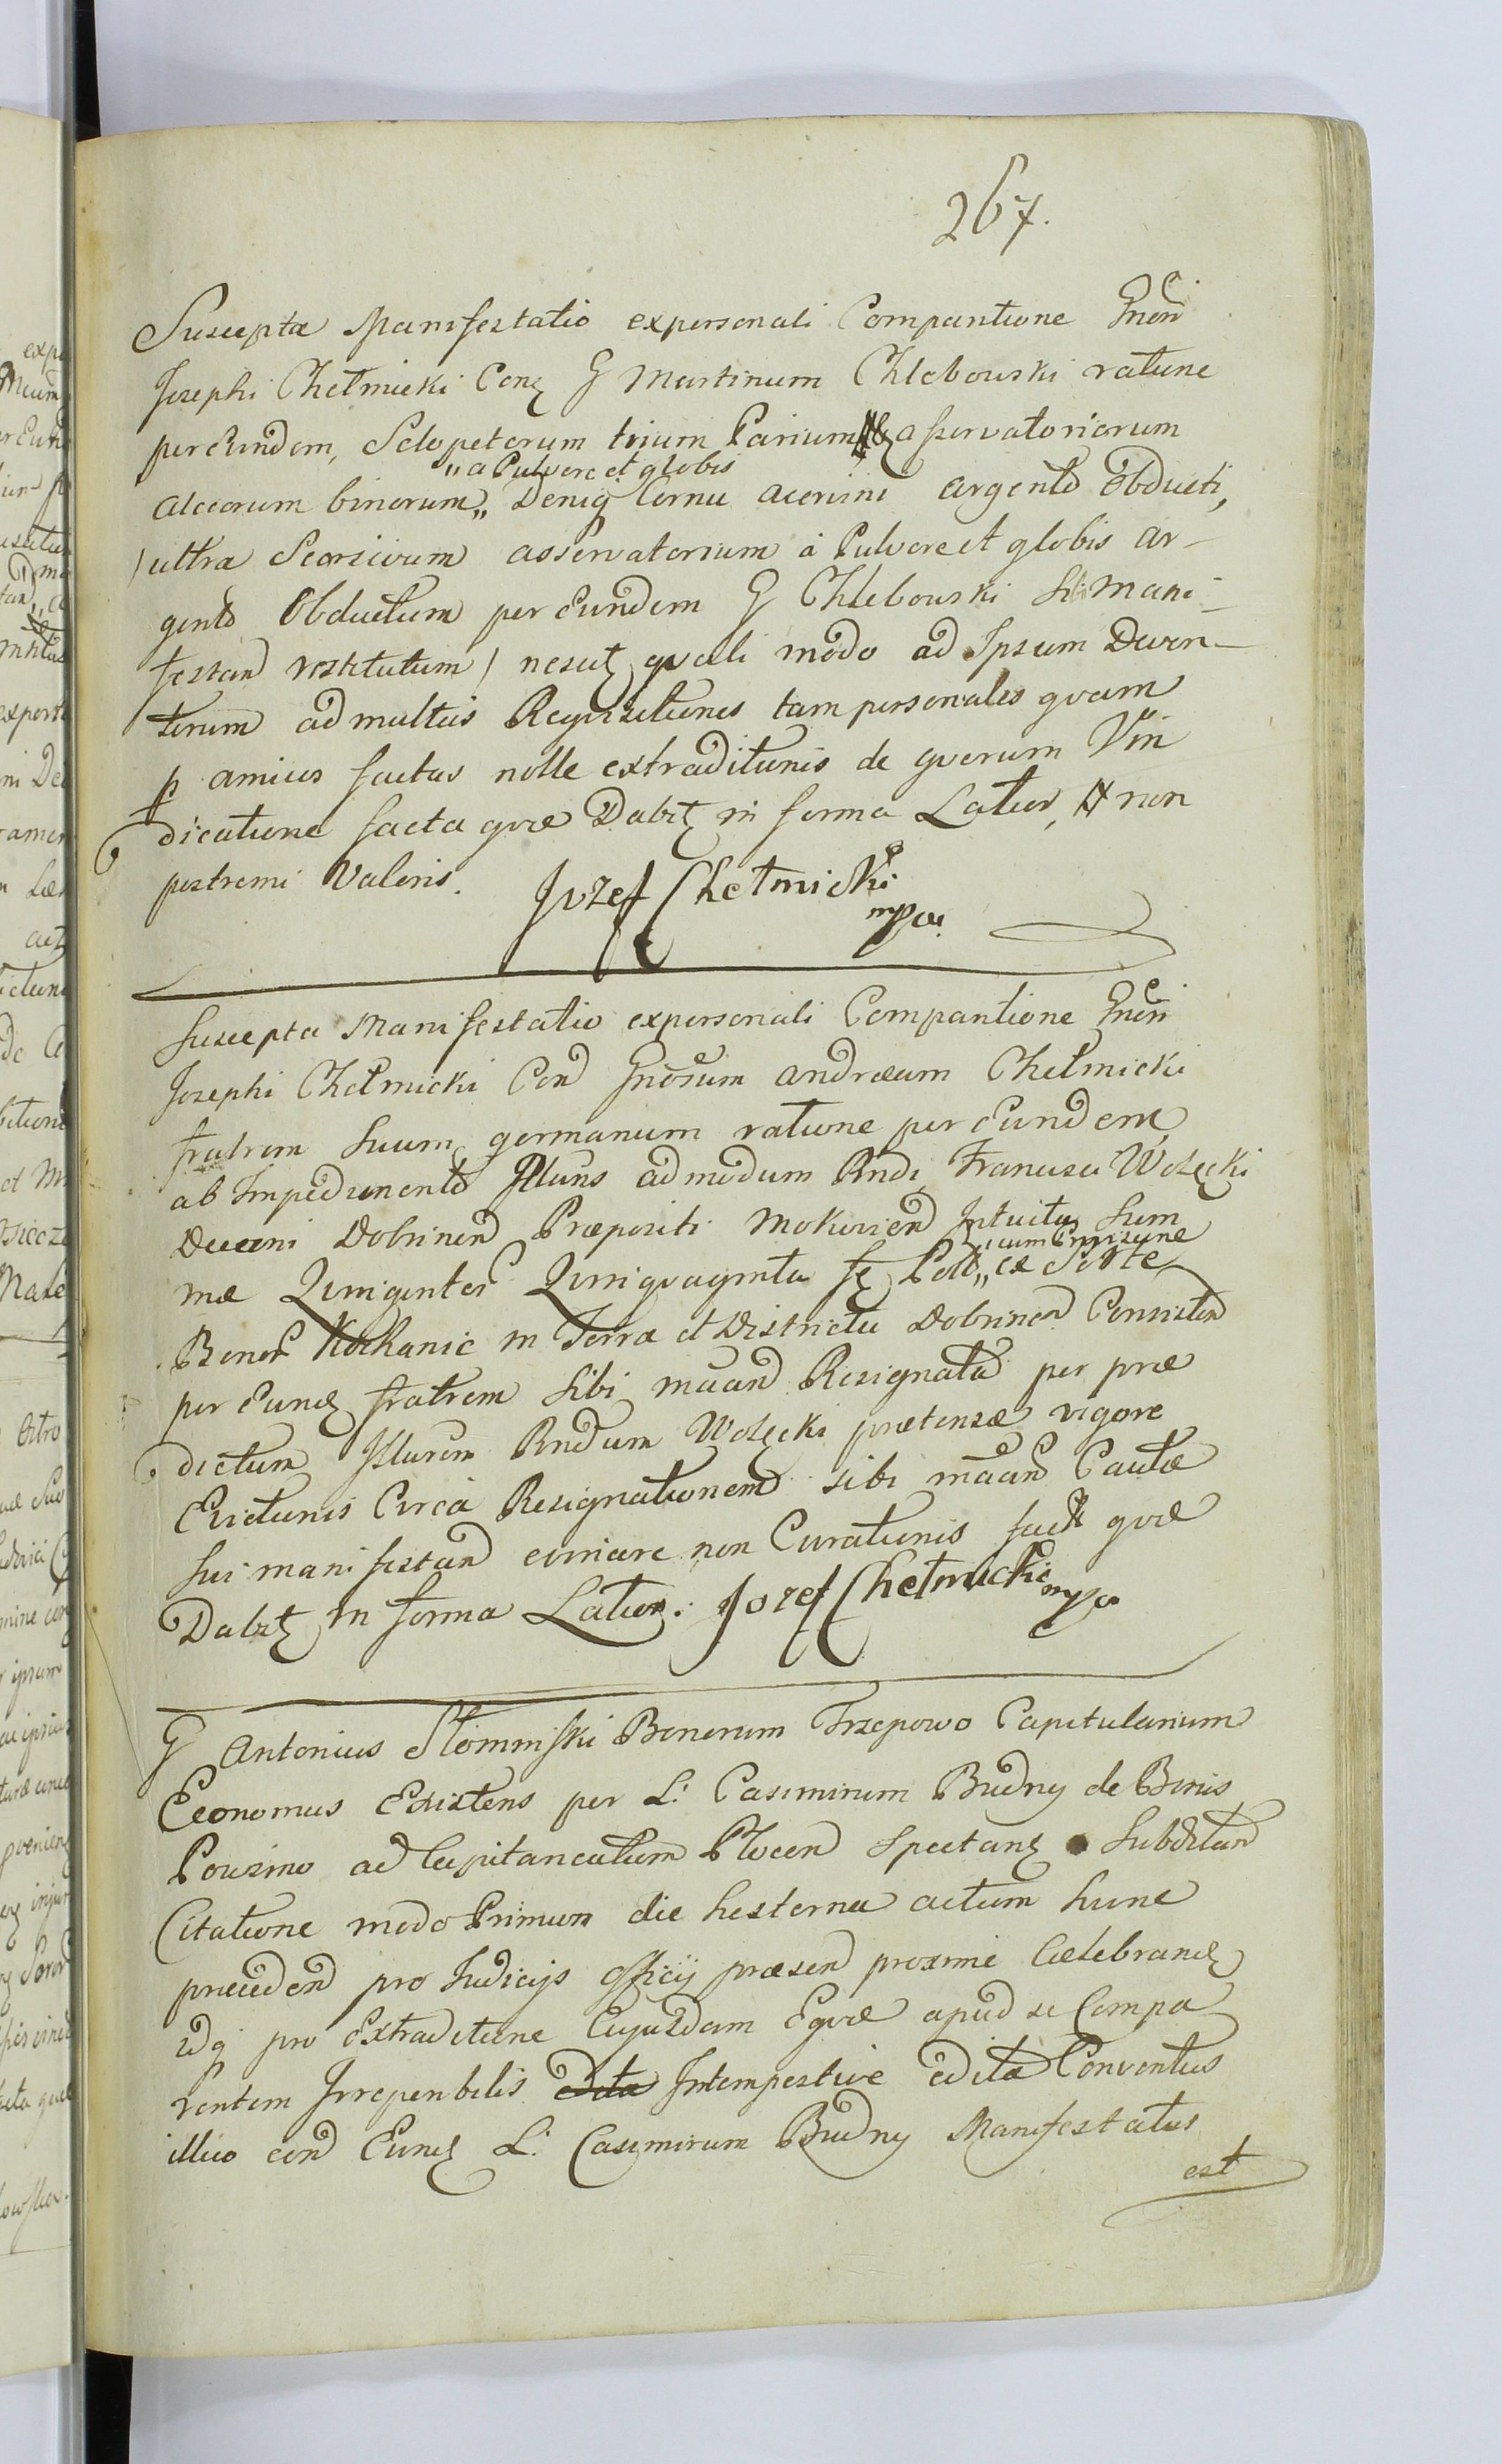 267.
Suscepta Manifestatio expersonali Compantione Gnen
Josephi Chełmicki Conz G Martinum Chlebowski ratune
per Eundem, Sclopetorum trium Parium asservatoriorum
"a Pulvere et globis
alceorum binorum,, Deniq Cornu acervini argento Obducti,
/ultra Scorsivum asservatorium á Pulvere et globis ar-
gento Obductum per Eundem G Chlebowski Sibi Mani-
festand restitutum/ nescitz qvali modo ad Ipsum Deven-
torum ad multas Reqvisitiones tam personales qvam
p amicos factas nolle extraditionis de qvorum Vin
dicatione facta qvæ Dabitz in forma Latior, non
postremi Valoris. Jozef Chełmicki
mpa
Suscepta Manifestatio expersonali Compantione Gnen
Josephi Chełmicki Con Gnosum andræum Chełmicki
fratrem Suum germanum ratione per Eundem
ab Impedimento Illuris admodum Rndi Francisci Wolęcki
Decani Dobrinen Præpositi Mokovien Intuitu Sum
"cum Provisione
mæ Qvingentor Qvinqvaginta fl Poll,, ex Sorte
Bonor Kochanie in Terra et Districtu Dobrinen Consisten
per Eund fratrem Sibi maan Resignata per præ
dictum Illurem Rndum Wolęcki prætensæ vigore
Evictionis Circa Resignationem sibi maan Cautæ
sui manifestand evincere non Curationis facta qvæ
Dabitz in forma Latior. Jozef Chełmicki mpa
G Antonius Słomiński Bonorum Trzepowo Capitularium
Economus Existens per L: Casimirum Budny de Bonis
Powsino ad Capitaneatum Plocen Spectanz Subditum
Citatione modo Primum die hesterna actum hunc
præceden pro Judicijs Officij præsen proxime Celebrandz
idq pro Extraditione Cujusdam Eqvæ apud se Compa
rentem Irreperibilis edita Intempestive edita Conventus
illico con Eund L: Casimirum Budny Manifestatus
est